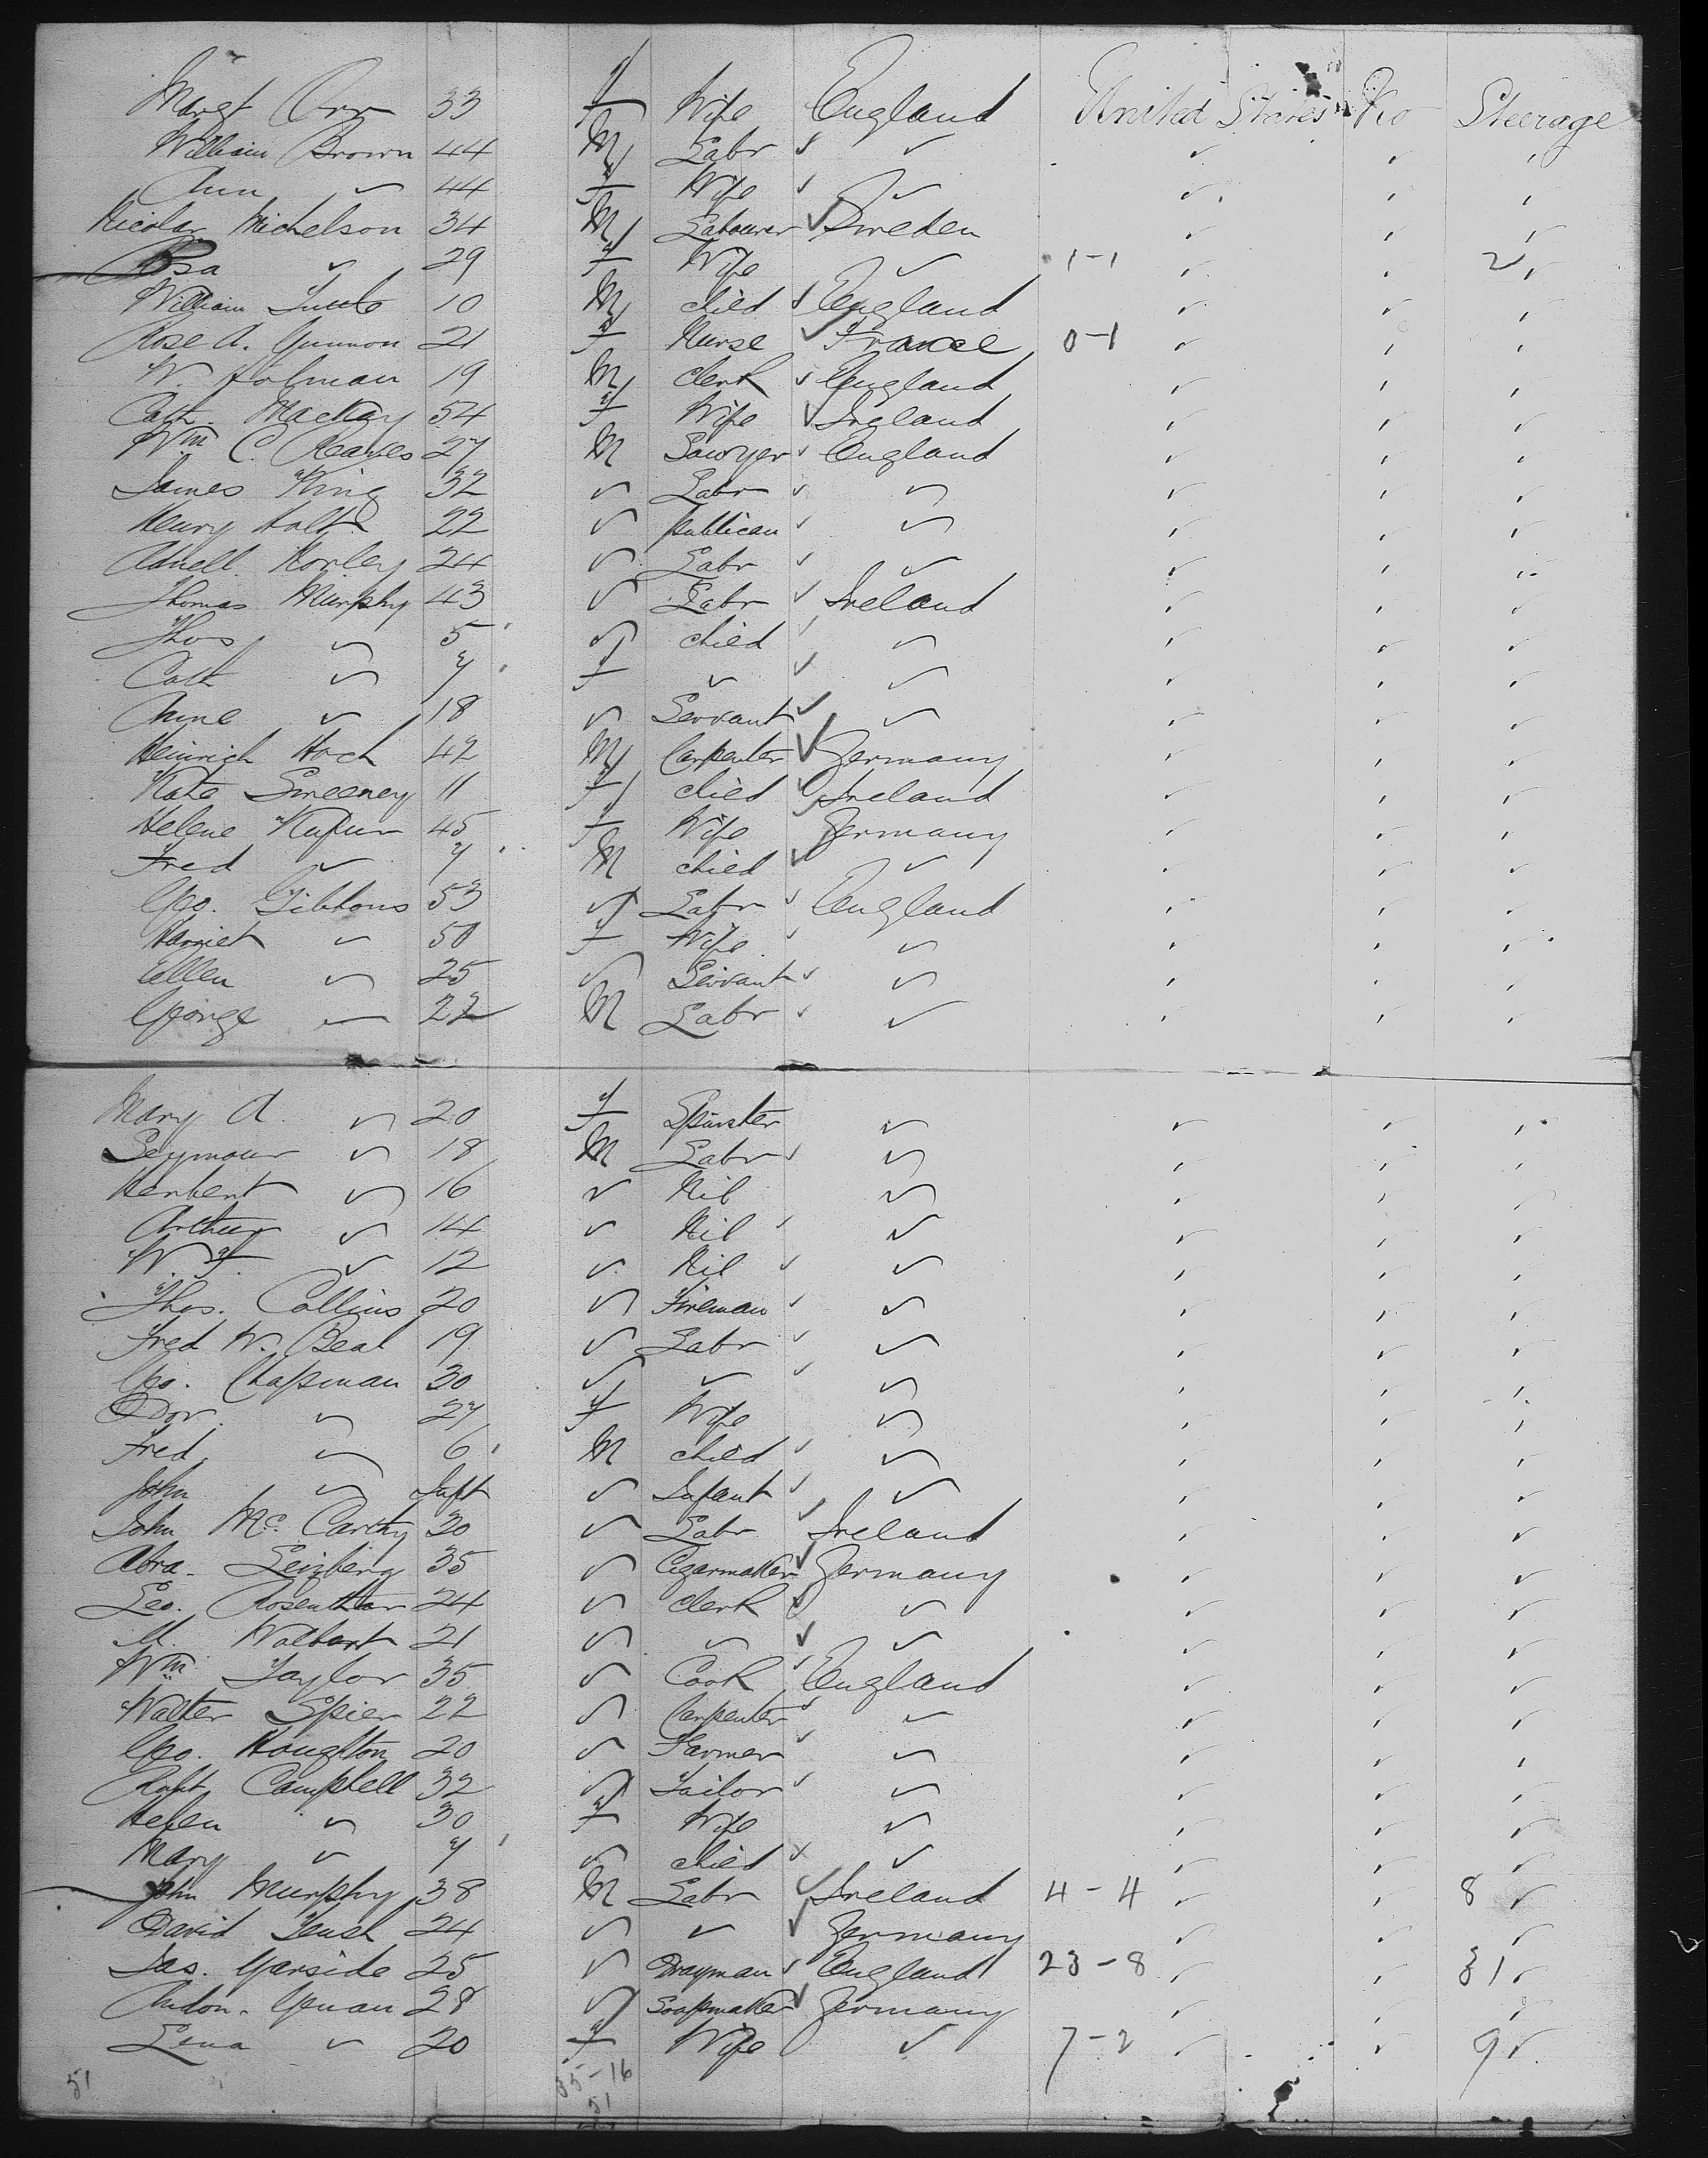 Margt Orr 33 f Wife England United States No Steerage
William Brown 44 M Labr ✓ ✓ ✓ ✓ ✓
Ann ✓ 44 f Wife ✓ ✓ ✓ ✓ ✓
Nicolar Michelson 34 M Labourer ✓ Sweden ✓ ✓ ✓
✓ 29 f Wife ✓ 1-1 ✓ ✓ 2 ✓
William 10 M child ✓ England ✓ ✓ ✓
Rose A. 21 f Nurse ✓ France 0-1 ✓ ✓ ✓
W. Holman 19 M Clerk ✓ England ✓ ✓ ✓
Cath. Mackay 54 f Wife ✓ Ireland ✓ ✓ ✓
Wm C. Reaves 27 M Sawyer ✓ England ✓ ✓ ✓
James King 32 ✓ Labr ✓ ✓ ✓ ✓ ✓
Henry Holt 22 ✓ publican ✓ ✓ ✓ ✓ ✓
Horley 24 ✓ Labr ✓ ✓ ✓ ✓ ✓
Thomas Murphy 43 ✓ Labr ✓ Ireland ✓ ✓ ✓
Thos ✓ 5 ✓ child ✓ ✓ ✓ ✓ ✓
Cath ✓ 7 f ✓ ✓ ✓ ✓ ✓ ✓
Anne ✓ 18 ✓ Servant ✓ ✓ ✓ ✓ ✓
Heinrich Hoch 42 M Carpenter ✓ Germany ✓ ✓ ✓
Kate Sweeney 11 f child ✓ Ireland ✓ ✓ ✓
Helene 45 f Wife Germany ✓ ✓ ✓
Fred ✓ 7 M child ✓ ✓ ✓ ✓ ✓
Geo. Gibbons 53 ✓ Labr ✓ England ✓ ✓ ✓
Harriet ✓ 50 f Wife ✓ ✓ ✓ ✓ ✓
Ellen ✓ 25 ✓ Servant ✓ ✓ ✓ ✓ ✓
George — 22 M Labr ✓ ✓ ✓ ✓ ✓
Mary A. ✓ 20 f Spinster ✓ ✓ ✓ ✓
Seymour ✓ 18 M Labr ✓ ✓ ✓ ✓ ✓
Herbert ✓ 16 ✓ Nil ✓ ✓ ✓ ✓
Arthur ✓ 14 ✓ Nil ✓ ✓ ✓ ✓ ✓
W. F. ✓ 12 ✓ Nil ✓ ✓ ✓ ✓ ✓
Thos. Collins 20 ✓ Fireman ✓ ✓ ✓ ✓ ✓
Fred W. Beal 19 ✓ Labr ✓ ✓ ✓ ✓ ✓
Geo. Chapman 30 ✓ ✓ ✓ ✓ ✓ ✓ ✓
Dor. ✓ 27 f Wife ✓ ✓ ✓ ✓
Fred ✓ 6 M child ✓ ✓ ✓ ✓ ✓
John ✓ Inft ✓ Infant ✓ ✓ ✓ ✓ ✓
John Mc. Carthy 30 ✓ Labr ✓ Ireland ✓ ✓ ✓
Abra. 35 ✓ Cigarmaker ✓ Germany ✓ ✓ ✓
Leo. 24 ✓ Clerk ✓ ✓ ✓ ✓ ✓
M. Walbert 21 ✓ ✓ ✓ ✓ ✓ ✓ ✓
Wm Taylor 35 ✓ Cook ✓ England ✓ ✓ ✓
Walter Spier 22 ✓ Carpenter ✓ ✓ ✓ ✓ ✓
Geo. Houghton 20 ✓ Farmer ✓ ✓ ✓ ✓ ✓
Robt. Campbell 32 ✓ Tailor ✓ ✓ ✓ ✓ ✓
Helen ✓ 30 f Wife ✓ ✓ ✓ ✓
Mary ✓ 7 ✓ child x ✓ ✓ ✓ ✓
John Murphy 38 M Labr ✓ Ireland 4-4 ✓ ✓ 8 ✓
David 24 ✓ ✓ ✓ Germany ✓ ✓ ✓
Jas. Garside 25 ✓ Drayman ✓ England 23-8 ✓ ✓ 31 ✓
28 ✓ Soapmaker ✓ Germany ✓ ✓ ✓
Lena ✓ 20 f Wife ✓ 7-2 ✓ ✓ 9 ✓
51 35-16
51